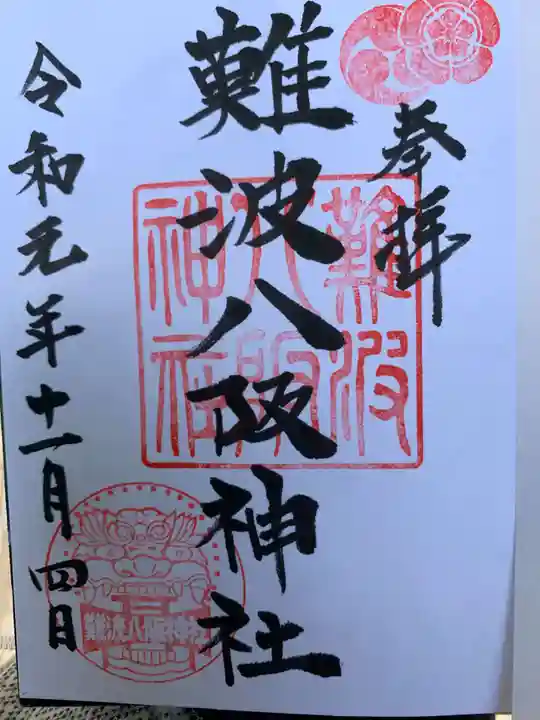 奉拝
難波八阪神社
令和元年十一月四日
難波
八阪
神社
難波八阪神社